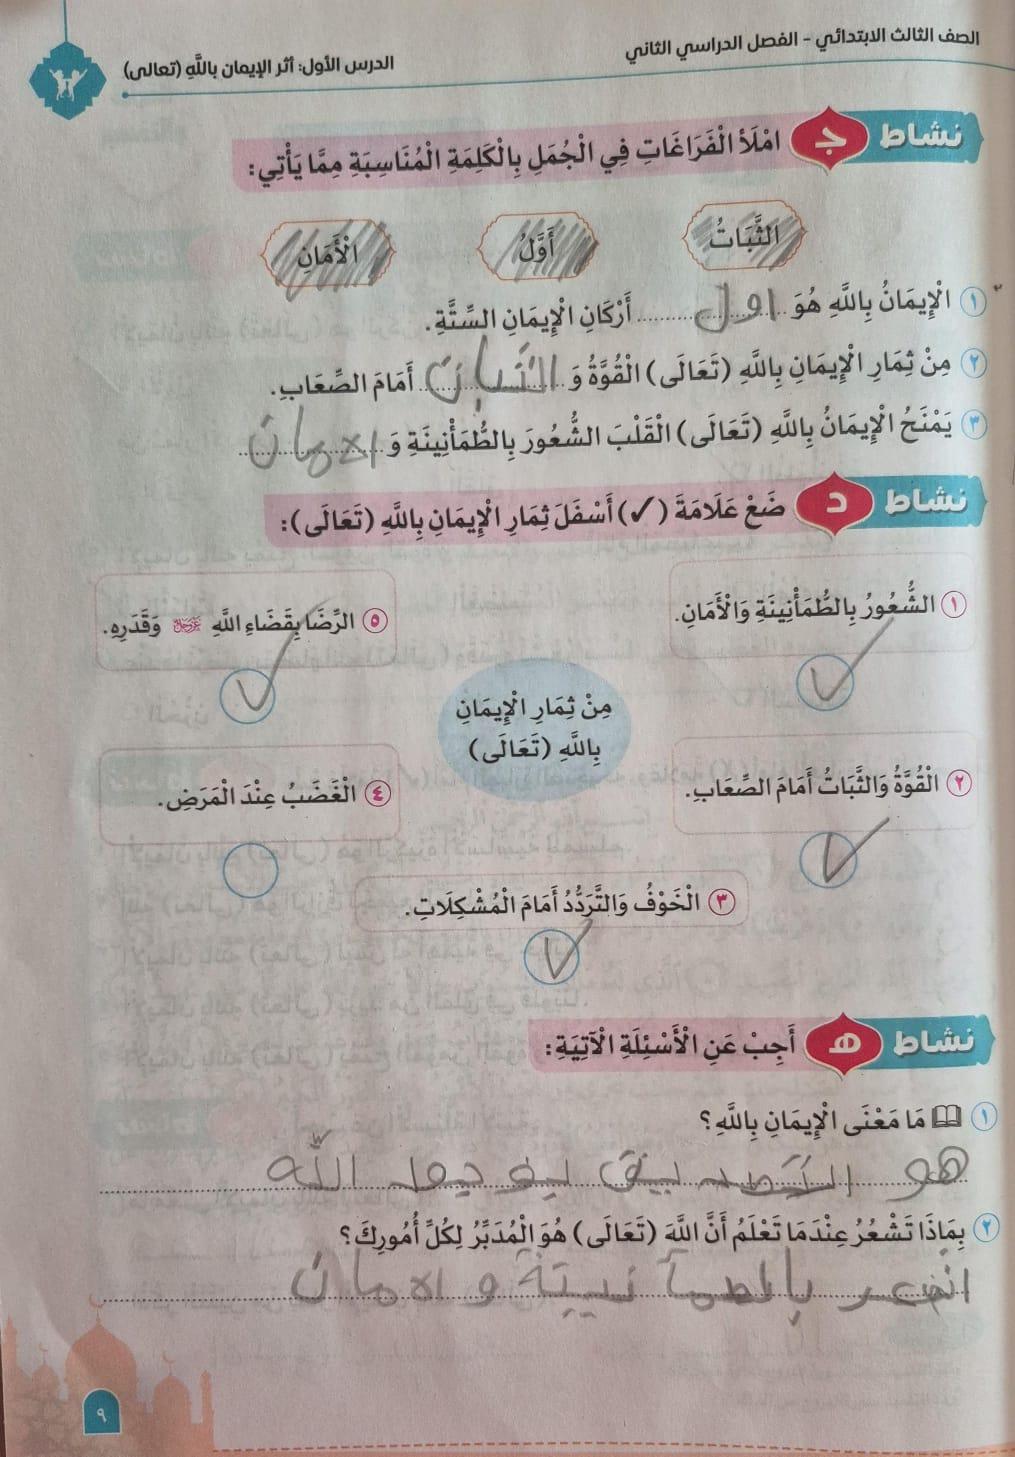 الصف الثالث الابتدائي - الفصل الدراسي الثاني
الدرس الأول: أثر الإيمان بالله (تعالى)
نشاط ج امْلَأْ الْفَرَاغَاتِ فِي الْجُمَلِ بِالْكَلِمَةِ الْمُنَاسِبَةِ مِمَّا يَأْتِي:
الثَّبَاتُ أَوَّلُ الْأَمَانِ
١ الْإِيمَانُ بِاللَّهِ هُوَ اول أَرْكَانِ الْإِيمَانِ السِّتَّةِ.
٢ مِنْ ثِمَارِ الْإِيمَانِ بِاللَّهِ (تَعَالَى) الْقُوَّةُ وَ الثبات أَمَامَ الصِّعَابِ.
٣ يَمْنَحُ الْإِيمَانُ بِاللَّهِ (تَعَالَى) الْقَلْبَ الشُّعُورَ بِالطُّمَأْنِينَةِ وَ الامان
نشاط د ضَعْ عَلَامَةَ (✓) أَسْفَلَ ثِمَارِ الْإِيمَانِ بِاللَّهِ (تَعَالَى):
١ الشُّعُورُ بِالطُّمَأْنِينَةِ وَالْأَمَانِ.
٥ الرِّضَا بِقَضَاءِ اللَّهِ عَزَّ وَجَلَّ وَقَدَرِهِ.
مِنْ ثِمَارِ الْإِيمَانِ
بِاللَّهِ (تَعَالَى)
٢ الْقُوَّةُ وَالثَّبَاتُ أَمَامَ الصِّعَابِ.
٤ الْغَضَبُ عِنْدَ الْمَرَضِ.
٣ الْخَوْفُ وَالتَّرَدُّدُ أَمَامَ الْمُشْكِلَاتِ.
نشاط هـ أَجِبْ عَنِ الْأَسْئِلَةِ الْآتِيَةِ:
١ مَا مَعْنَى الْإِيمَانِ بِاللَّهِ؟
هو الله
٢ بِمَاذَا تَشْعُرُ عِنْدَمَا تَعْلَمُ أَنَّ اللَّهَ (تَعَالَى) هُوَ الْمُدَبِّرُ لِكُلِّ أُمُورِكَ؟
والامان
٩